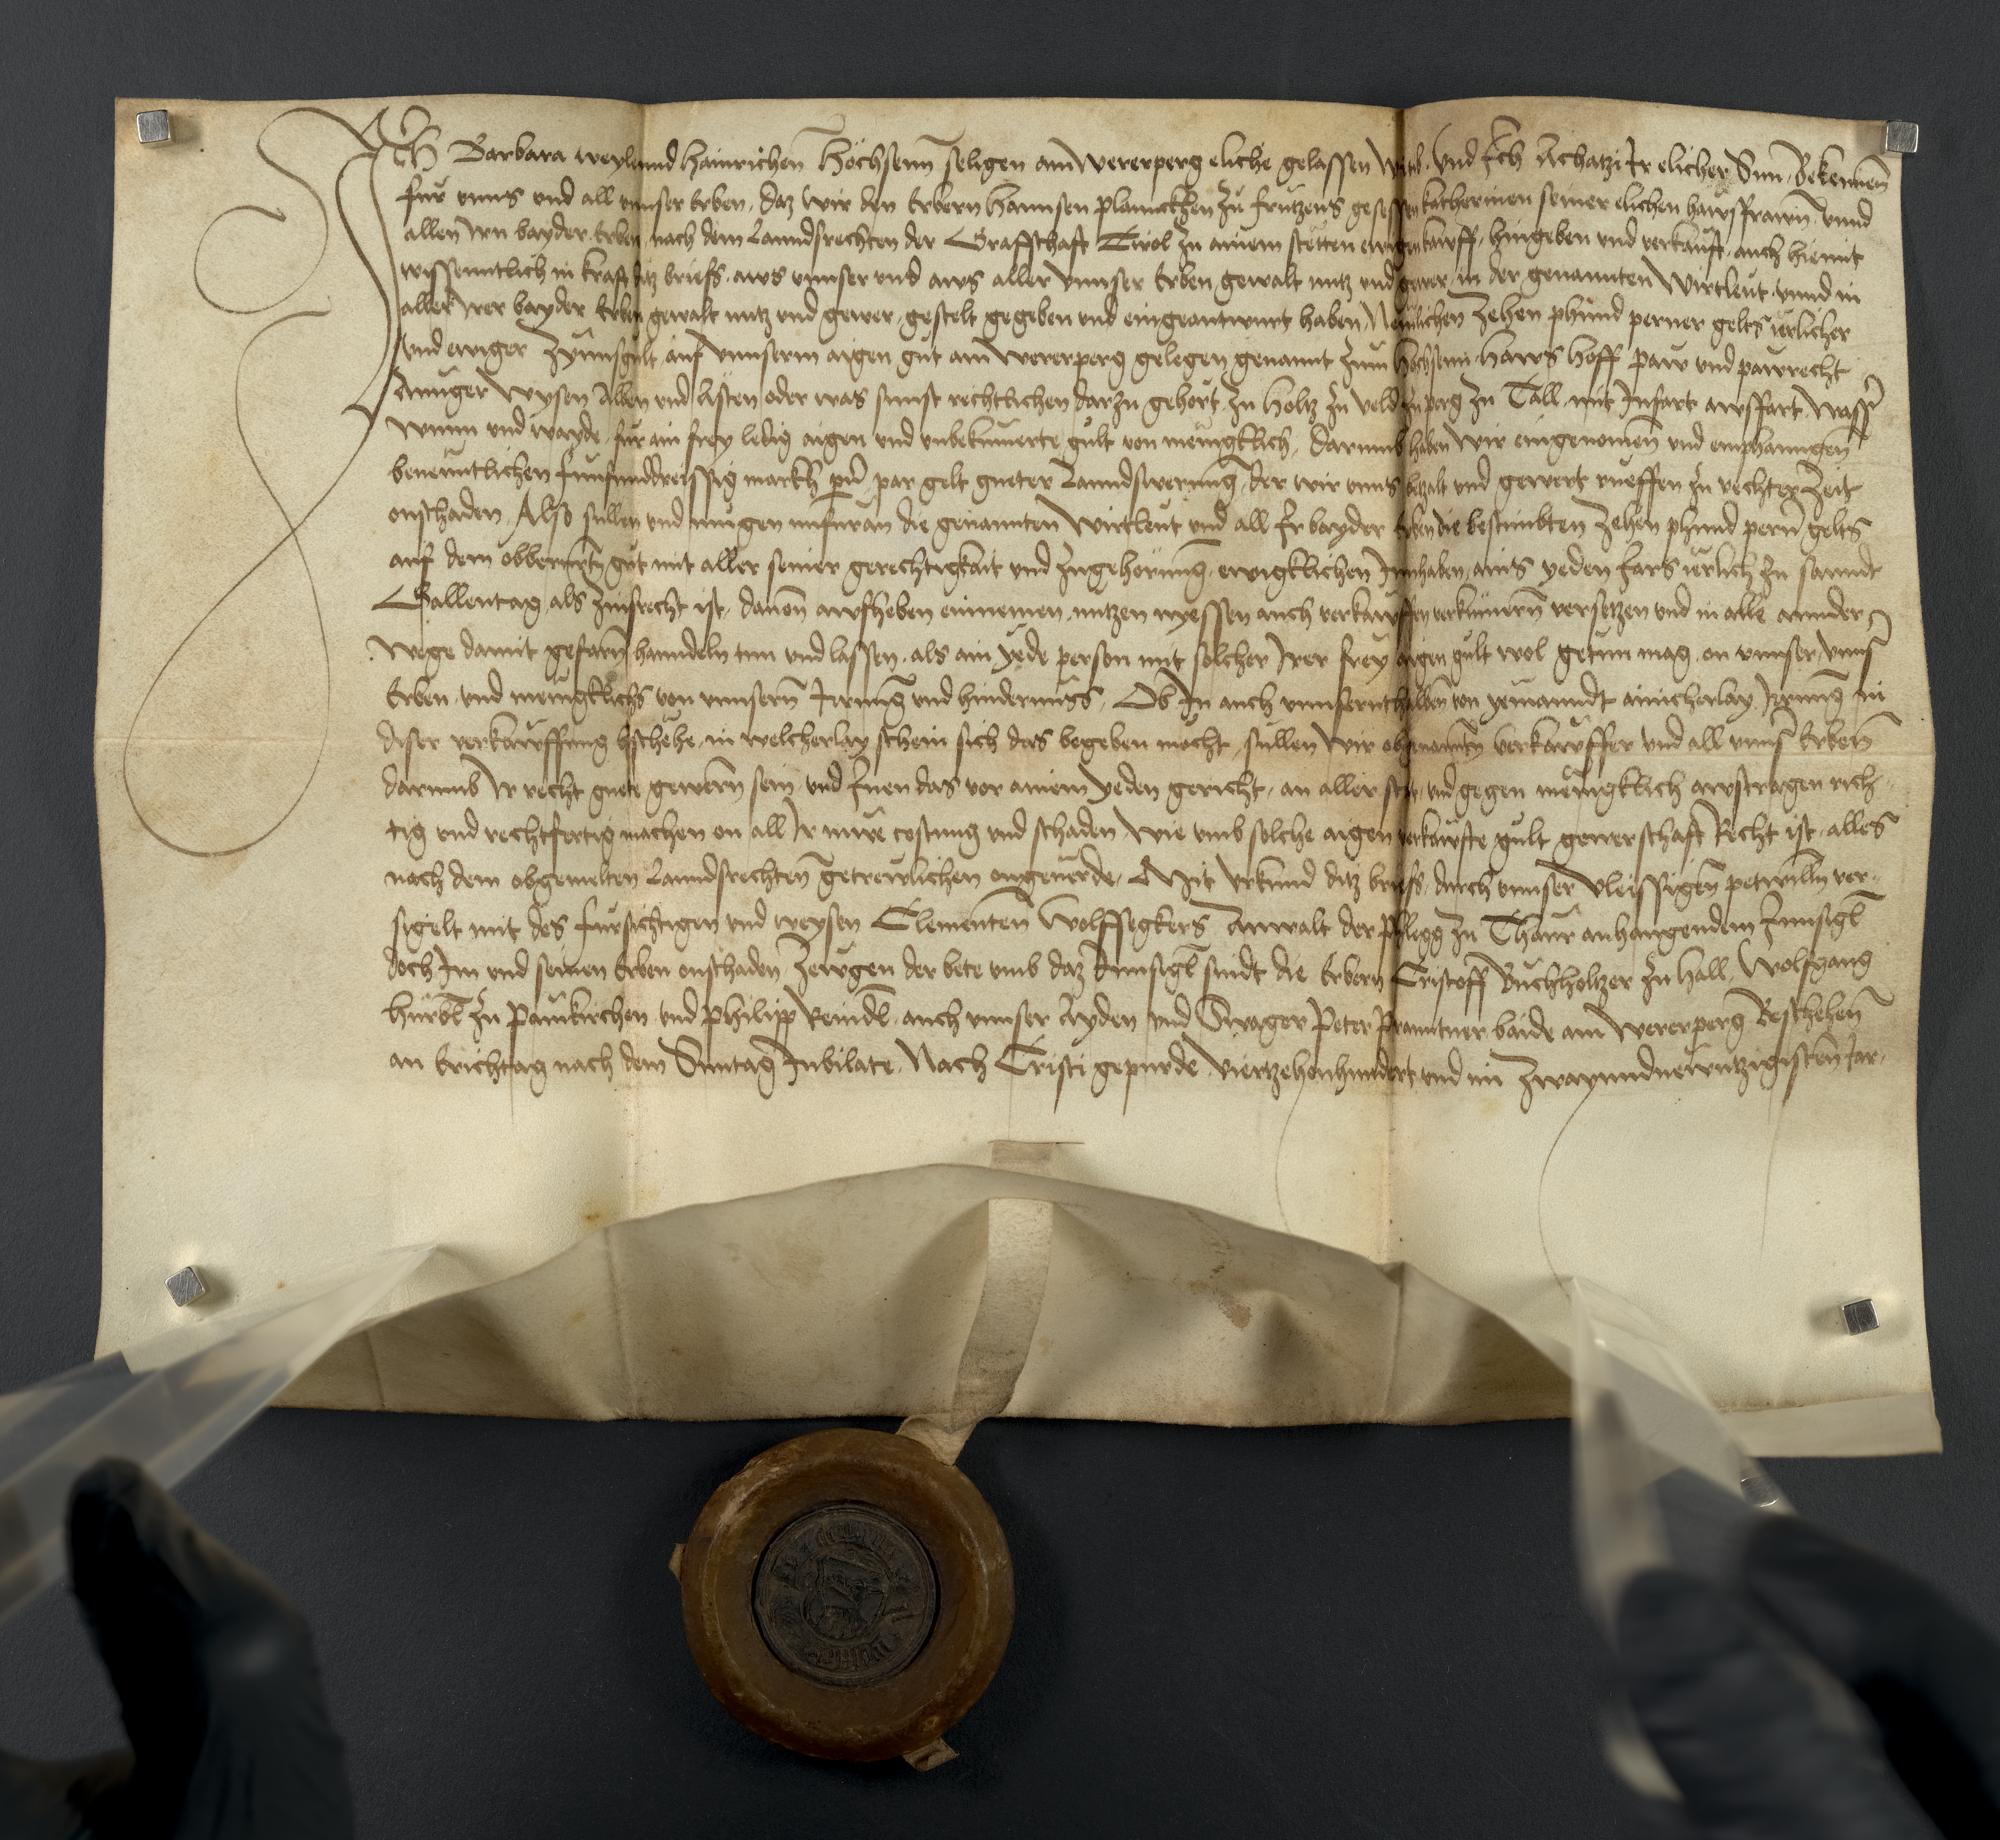 Ich Barbara weylennd Hainrichen Höchsenn seligen am Wererperg eliche gelassen Wittib. Und Ich Achatzi Ir elicher Sun. Bekennen
für unns und all unnser Erben, daz wir den Erbern Hannsen Planncken zu frutzens gesessen katherinen seiner elichen hawsfrawn. unnd
allen irn bayder Erben, nach dem Lanndsrechten der Graffschaft Tirol zu ainem stetten ewigen kauff, hingeben und verkaufft, auch hiemit
wissenntlich in kraft ditz briefs, aws unnser und aws aller unnser Erben gewalt nutz und gewer, in der genannten Wirtleut, unnd in
aller irer bayder Erben gewalt nutz und gewer, gestelt gegeben und eingeantwurt haben, Nemlichen Zehen phund perner gelts ierlicher
und ewiger Zynnsgult auf unnserm aigen gut am Wererperg gelegen genannt zum Höchsenn. Haws Hoff paw und pawrecht
Annger Wysen Alben und Asten oder was sunst rechtlichen darzu gehort. zu Holtz zu veld zu perg zu Tall. mit Infart awsfart. Wasser
Wunn und wayde. für ain frey ledig aigen und unbekumerte gült von menigklich, Darumb haben Wir eingenomen und emphanngen
benenntlichen funfunddreissig markh perner. par gelt gueter Lanndswerung, der wir unns betzalt und gewert rueffen zu rechter Zeit
onschaden, Also sullen und mugen nufüran die genannten Wirtleut und all Ir bayder Erben die bestimbten Zehen phund perner gelts
auf dem obberürten gut mit aller seiner gerechtigkait und zugehörung, ewigklichen Innhaben, ains yeden Jars ierlich zu sanndt
Gallentag, als Zinsrecht ist, dauon aufheben einnemen, nutzen nyessen auch verkauffen verkumern versetzen und in alle annder
Wege damit gefarn hanndeln tun und lassen, als ain yede person mit solcher irer frey aigen gült wol getun mag, on unnser, unnser
Erben, und menigklichs von unnsern Irrung und hindernüss, Ob In auch unnsernthalben von yemanndt ainicherlay Irrung in
diser verkauffung beschehe, in welcherlay schein sich das begeben möcht, sullen Wir obgenannten Verkauffer und all unnser Erben
darumb ir recht guete gewern sein, und Inen das vor ainem yeden gericht, an aller stat, und gegen menigklich awstragen rich-
tig und rechtfertig machen on all Ir müe costung und schaden, Wie umb solche aigen verkaufte gült gewerschaft Recht ist, alles
nach dem obgemelten Lanndsrechten getrewlichen ongeuerde, Mit Urkund ditz briefs, durch unnser vleissigen petwillen ver-
sigelt mit des fürsichtigen und weysen Clementen Wolffegkers Anwalt der Phleg zu Thaur anhangendem Innsigl
doch im und seinen Erben onschaden, Zewgen der bete umb daz Innsigl sindt die Erbern Cristoff Buchholtzer zu Hall, Wolfgang
Hürbl zu Paumkirchen und Philipp Reindl, auch unnser Ayden und Swager Peter Pranntner, baide am Wererperg Beschehen
an Erichtag nach dem Suntag Jubilate, Nach Cristi gepurde Viertzehenhundert und im Zwayundnewntzigisten Jar.